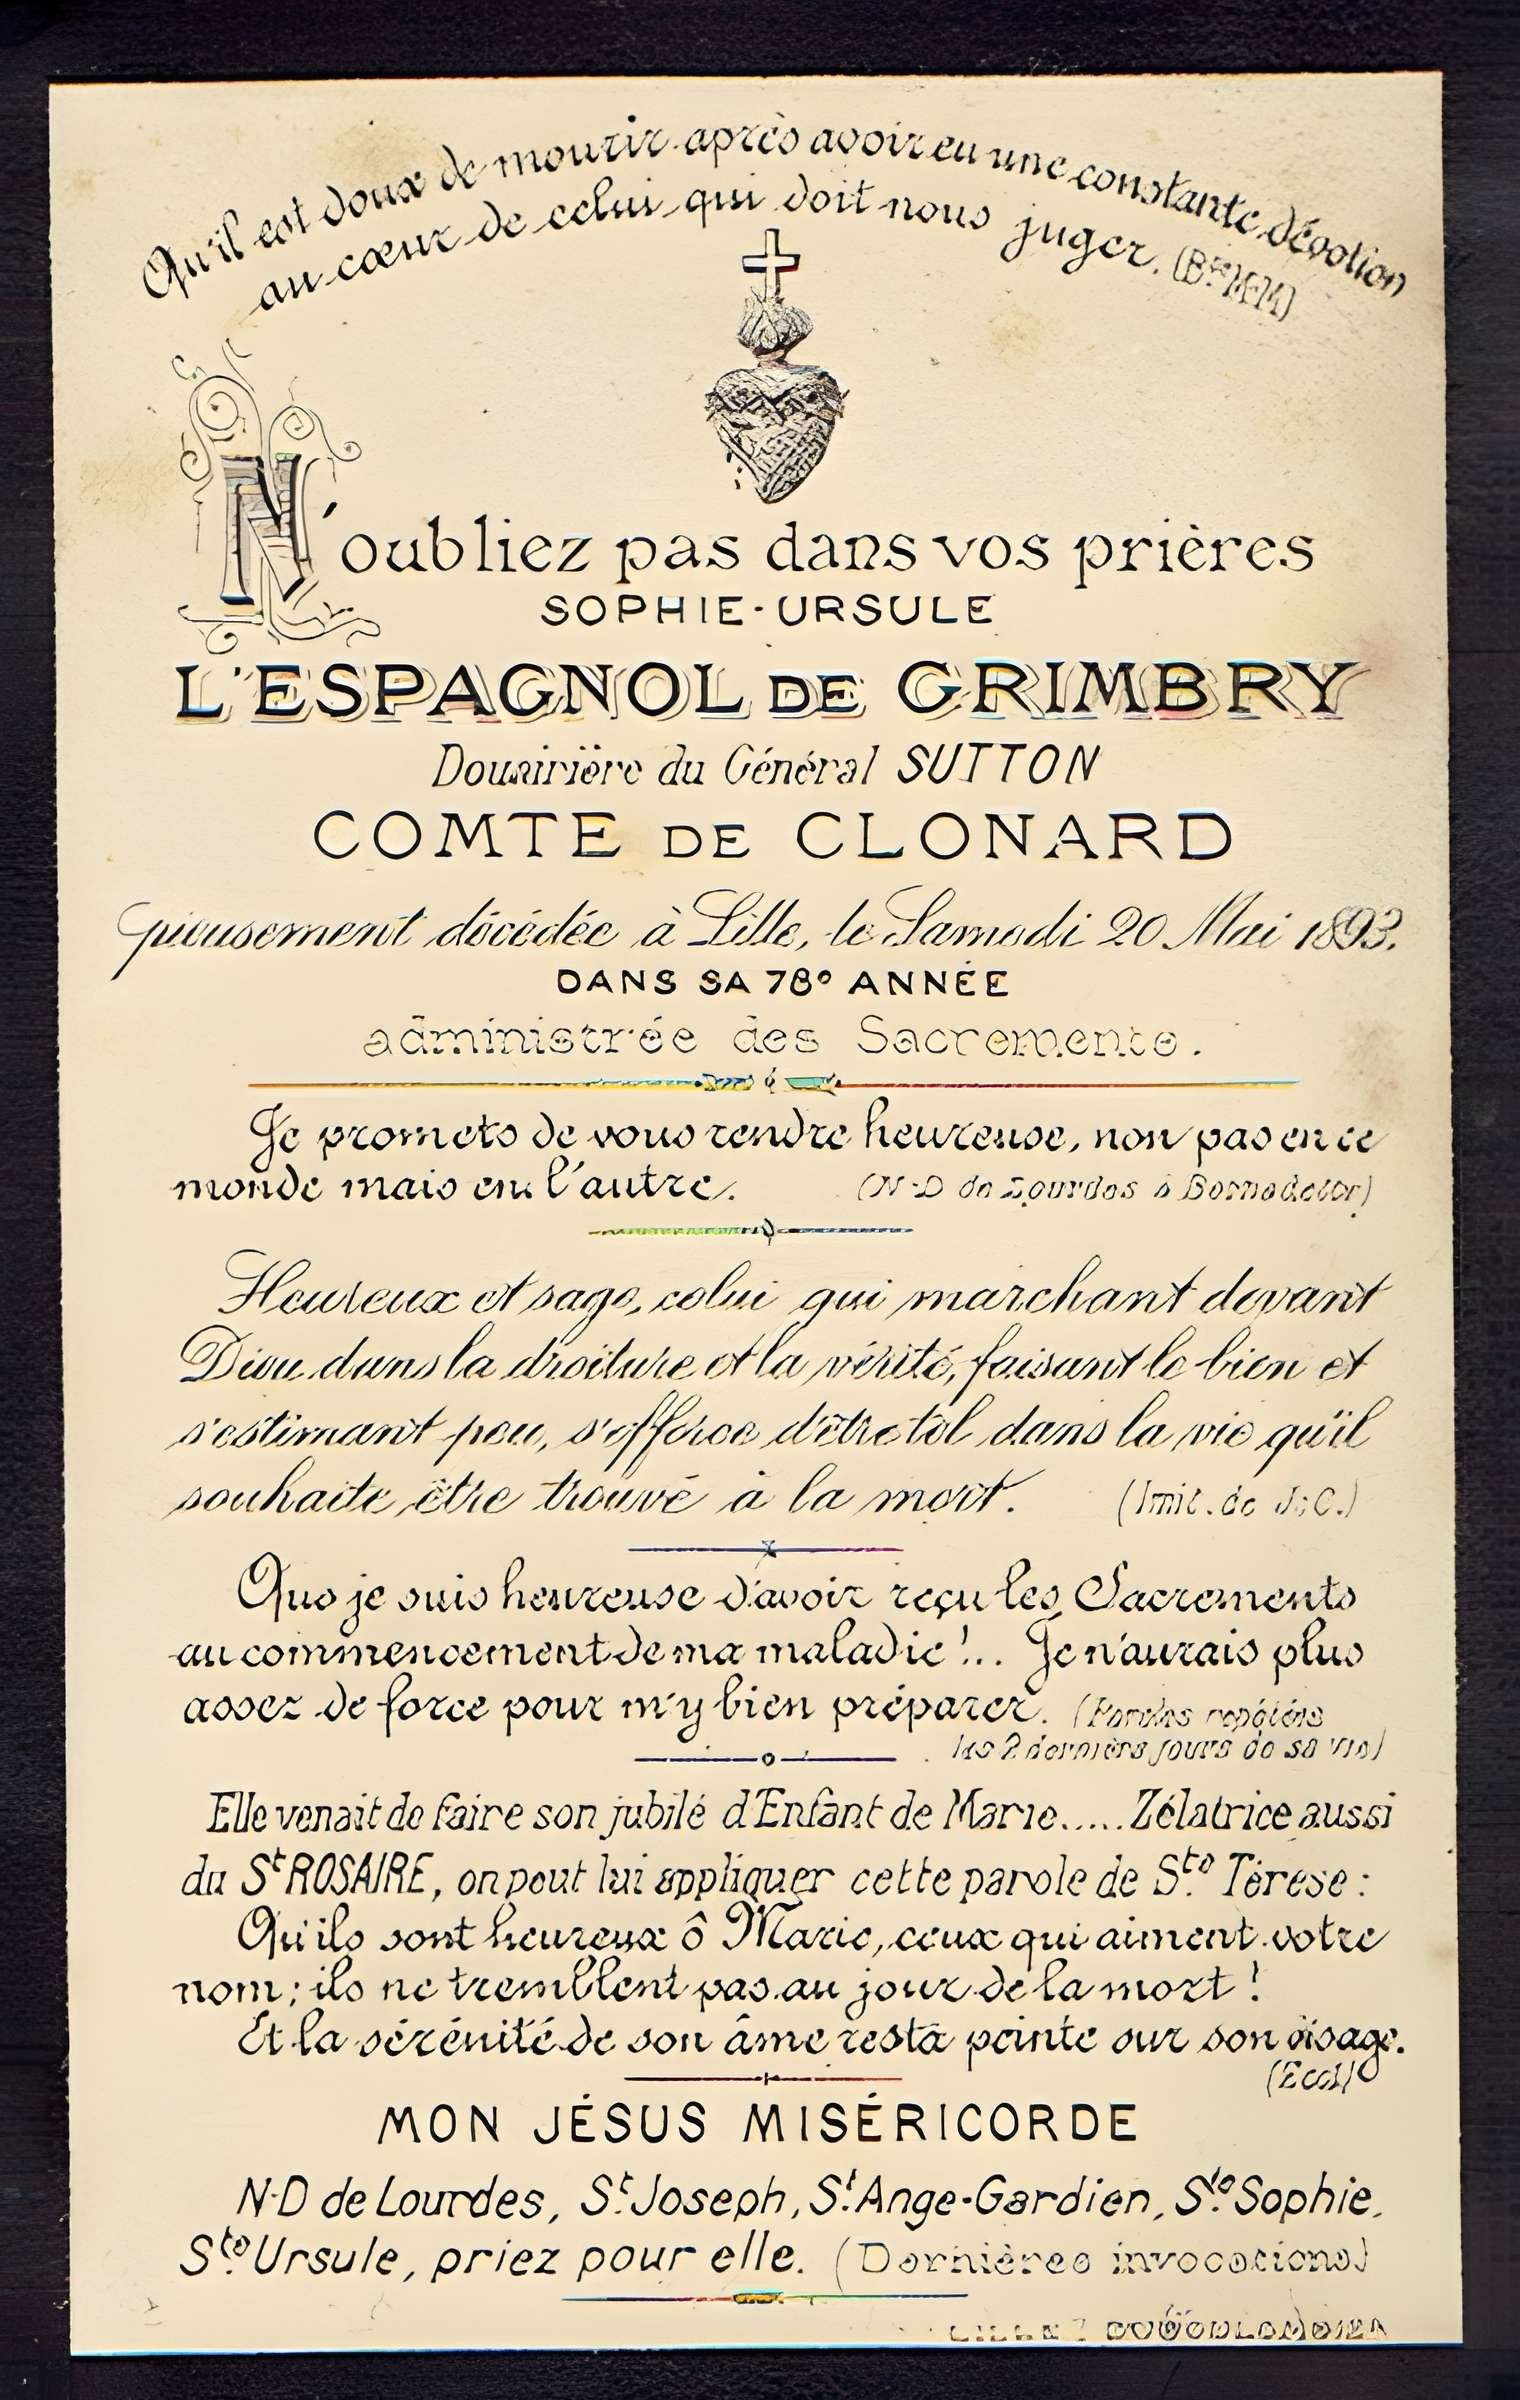 Qu'il est doux de mourir après avoir eu une constante dévotion
au cœur de celui qui doit nous juger. (Bse M-M)
N'oubliez pas dans vos prières
SOPHIE-URSULE
L'ESPAGNOL DE GRIMBRY
Douairière du Général SUTTON
COMTE DE CLONARD
pieusement décédée à Lille, le Samedi 20 Mai 1893.
DANS SA 78e ANNÉE
administrée des Sacrements.
Je promets de vous rendre heureuse, non pas en ce
monde mais en l'autre. (N-D de Lourdes à Bernadette)
Heureux et sage, celui qui marchant devant
Dieu dans la droiture et la vérité, faisant le bien et
s'estimant peu, s'efforce d'être tel dans la vie qu'il
souhaite être trouvé à la mort. (Imit. de J.C.)
Que je suis heureuse d'avoir reçu les Sacrements
au commencement de ma maladie!.. Je n'aurais plus
assez de force pour m'y bien préparer. (Paroles répétées
les 2 derniers jours de sa vie)
Elle venait de faire son jubilé d'Enfant de Marie..... Zélatrice aussi
du St ROSAIRE, on peut lui appliquer cette parole de Ste Térèse:
Qu'ils sont heureux ô Marie, ceux qui aiment votre
nom; ils ne tremblent pas au jour de la mort!
Et la sérénité de son âme resta peinte sur son visage.
(Eccl)
MON JÉSUS MISÉRICORDE
N-D de Lourdes, St Joseph, St Ange-Gardien, Ste Sophie,
Ste Ursule, priez pour elle. (Dernières invocations)
LILLE